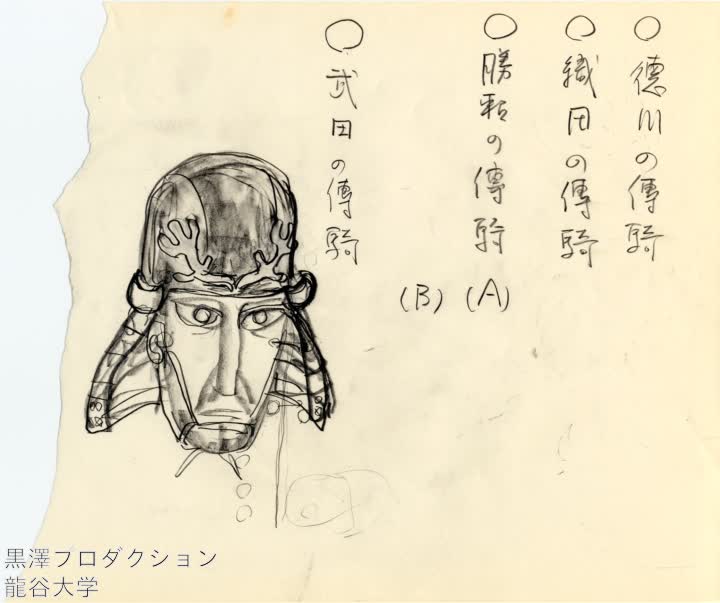 ○徳川の傳騎
○織田の傳騎
○勝頼の傳騎
(A)
(B)
○武田の傳騎
黒澤プロダクション
龍谷大学